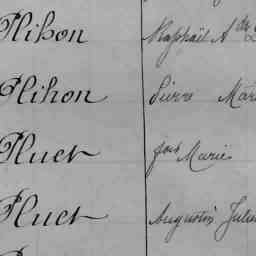 Plihon Raphaël A
Plihon Pierre Mar
Pluet Jos Marie
Pluet Augustin Julie